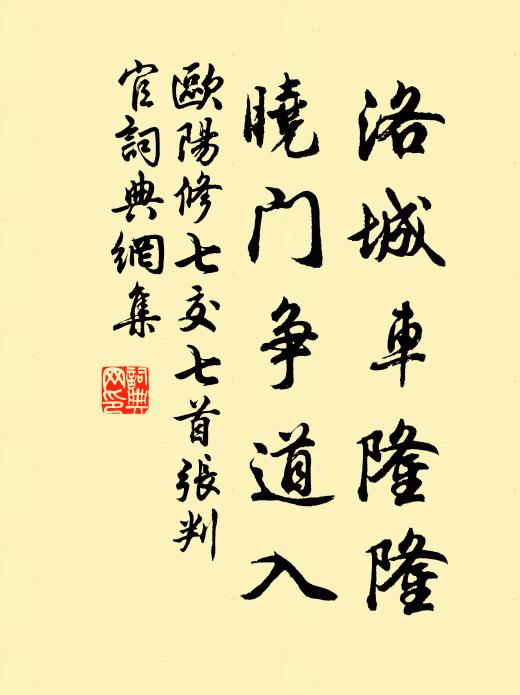 洛城車隆隆
曉門爭道入
歐陽修七交七首張判
官詞典網集
詞典
网印